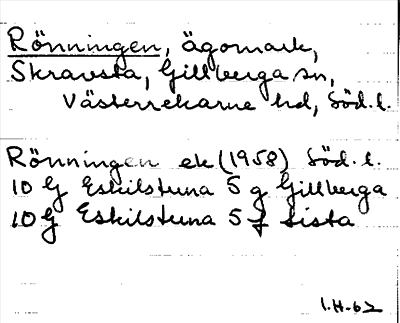 Rönningen, ägomark,
Skravsta, Gillberga sn,
Västerrekarne hd, Söd. l.
Rönningen ek (1958) Söd. l.
10 G Eskilstuna 5 g Gillberga
10 G Eskilstuna 5 f Sista
I.H-62